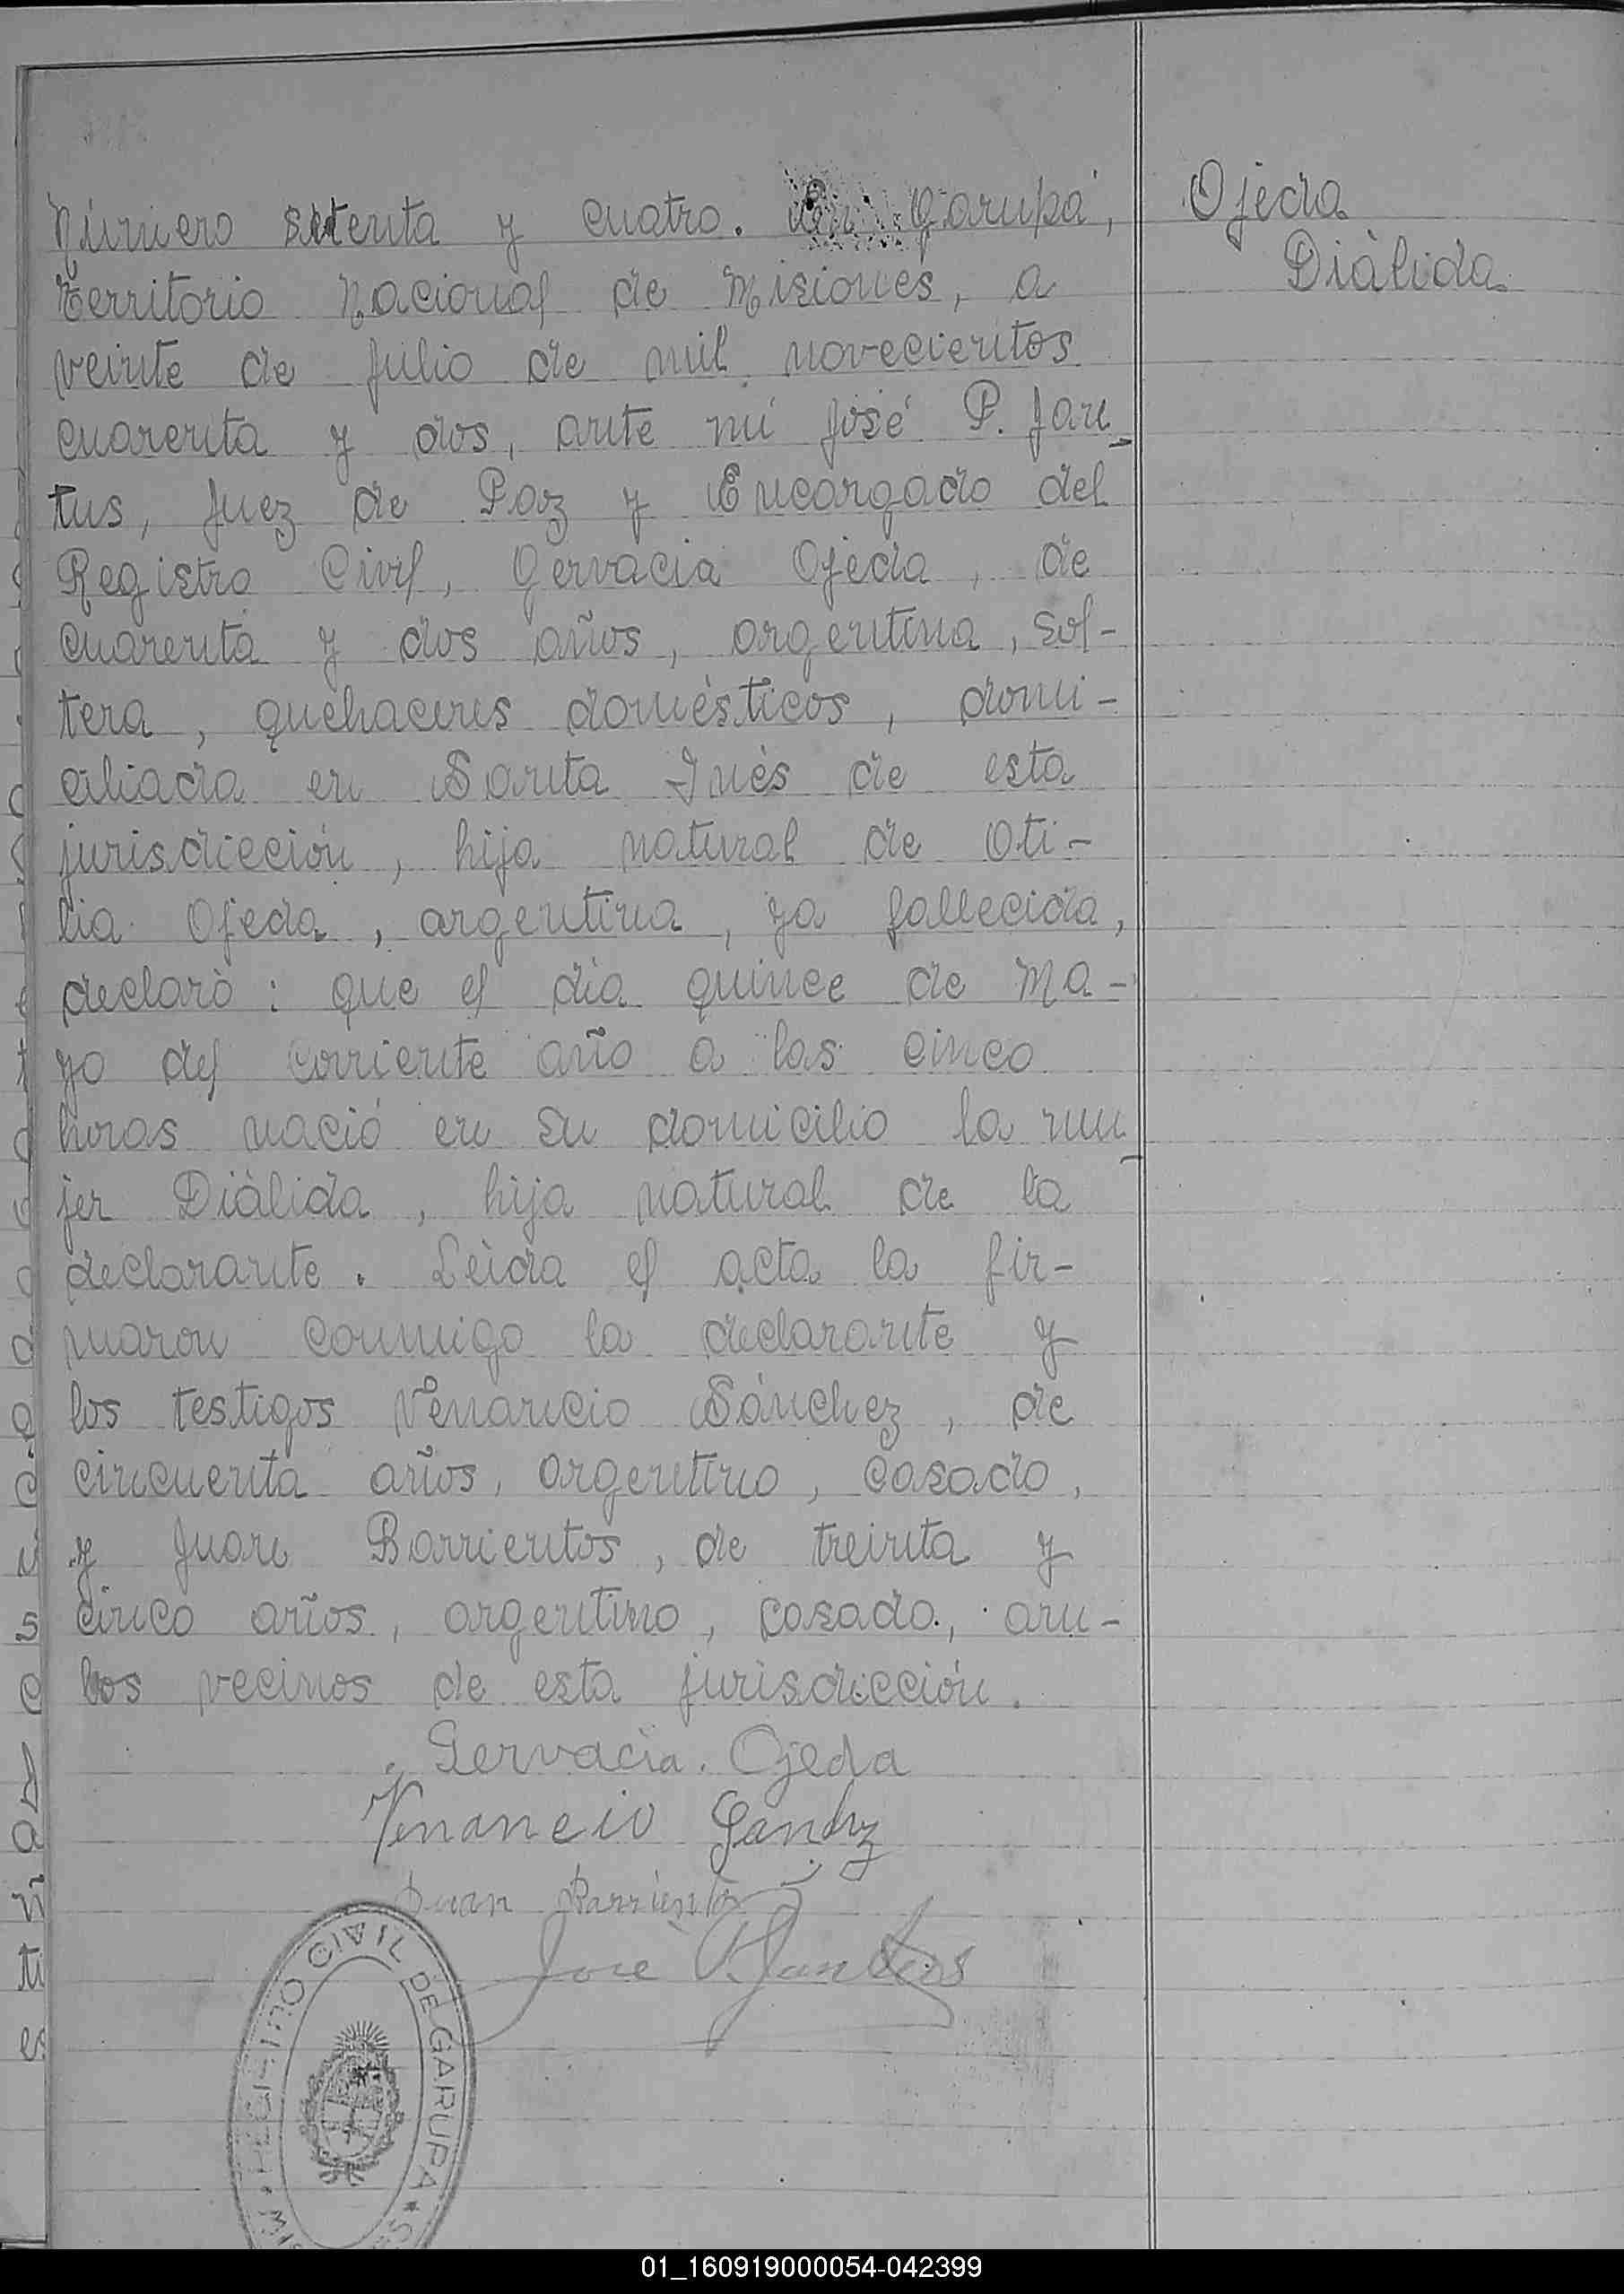 Número setenta y cuatro. En Garupá,
territorio Nacional de Misiones, a
veinte de julio de mil novecientos
cuarenta y dos, ante mí José P. Jan-
tus, Juez de Paz y Encargado del
Registro Civil, Gervacia Ojeda, de
cuarenta y dos años, argentina, sol-
tera, quehaceres domésticos, domi-
ciliada en Santa Inés de esta
jurisdicción, hija natural de Oti-
lia Ojeda, argentina, ya fallecida,
declaró: que el día quince de Ma-
yo del corriente año a las cinco
horas nació en su domicilio la mu-
jer Diálida, hija natural de la
declarante. Leída el acta la fir-
maron conmigo la declarante y
los testigos Venancio Sánchez, de
cincuenta años, argentino, casado,
y Juan Barrientos, de treinta y
cinco años, argentino, casado, am-
bos vecinos de esta jurisdicción.
Gervacia. Ojeda
Venancio Sanchz
Juan Barrientos
José P. Jantus
Ojeda
Diálida.
REGISTRO CIVIL DE GARUPA
01_160919000054-042399